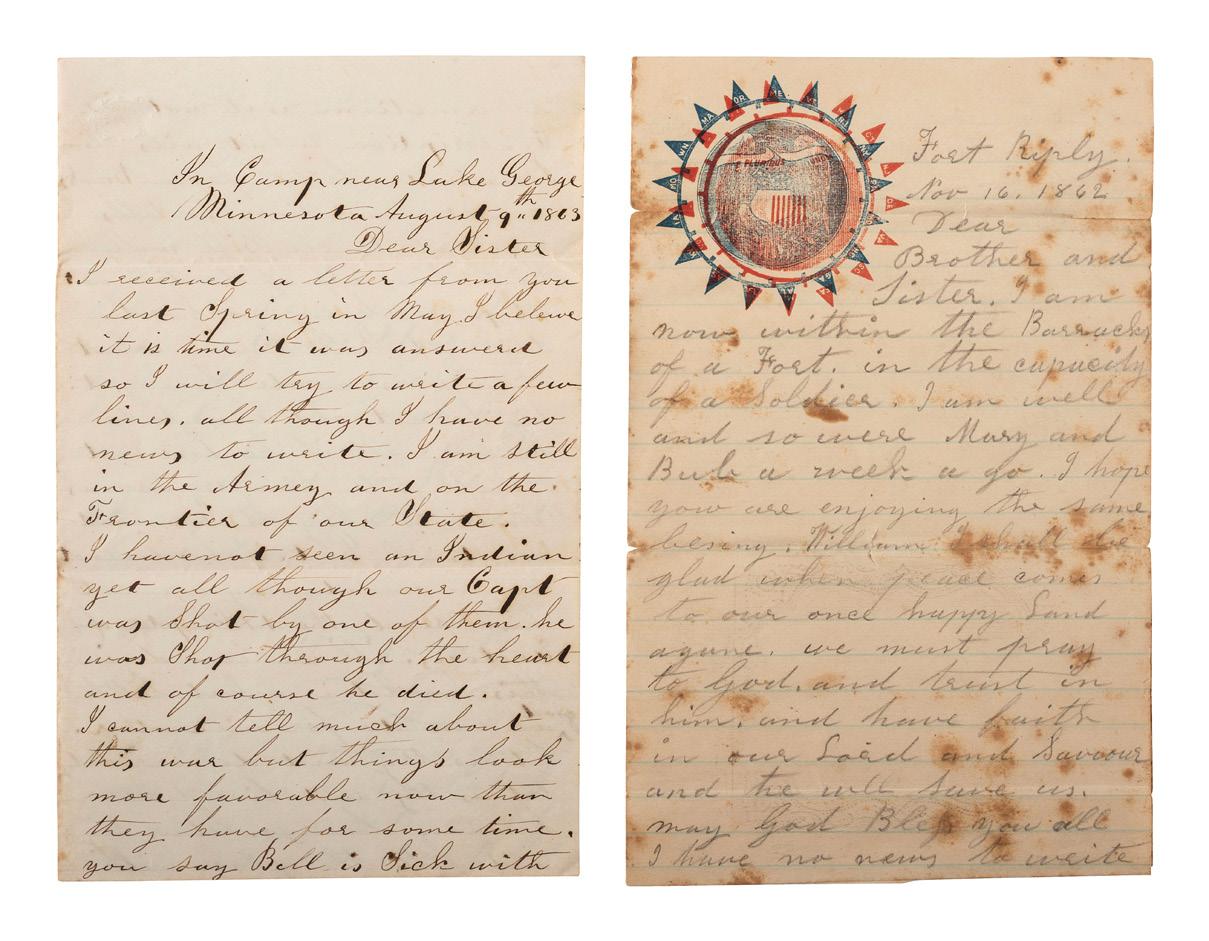 In Camp near Lake George
Minnesota August 9th 1863
Dear Sister
I received a letter from you
last Spring in May I beleive
it is time it was answerd
so I will try to write a few
lines. all though I have no
news to write. I am still
in the Armey and on the
Frontier of our State.
I have not seen an Indian
yet all though our Capt
was Shot by one of them. he
was Shot through the heart
and of course he died.
I cannot tell much about
this war but things look
more favorable now than
they have for some time.
you say Bell is Sick with
E PLURIBUS UNUM
OR
ME
MA
WN
MO
Fort Riply.
Nov 16. 1862
Dear
Brother and
Sister. I am
now within the Barracks
of a Fort. in the capacity
of a Soldier. I am well
and so were Mary and
Bub a week a go. I hope
you are enjoying the same
besing. William I shall be
glad when peace comes
to our once happy Land
agane. we must pray
to God. and trust in
him. and have faith
in our Lord and Savour
and he will save us.
may God Bless you all
I have no news to write